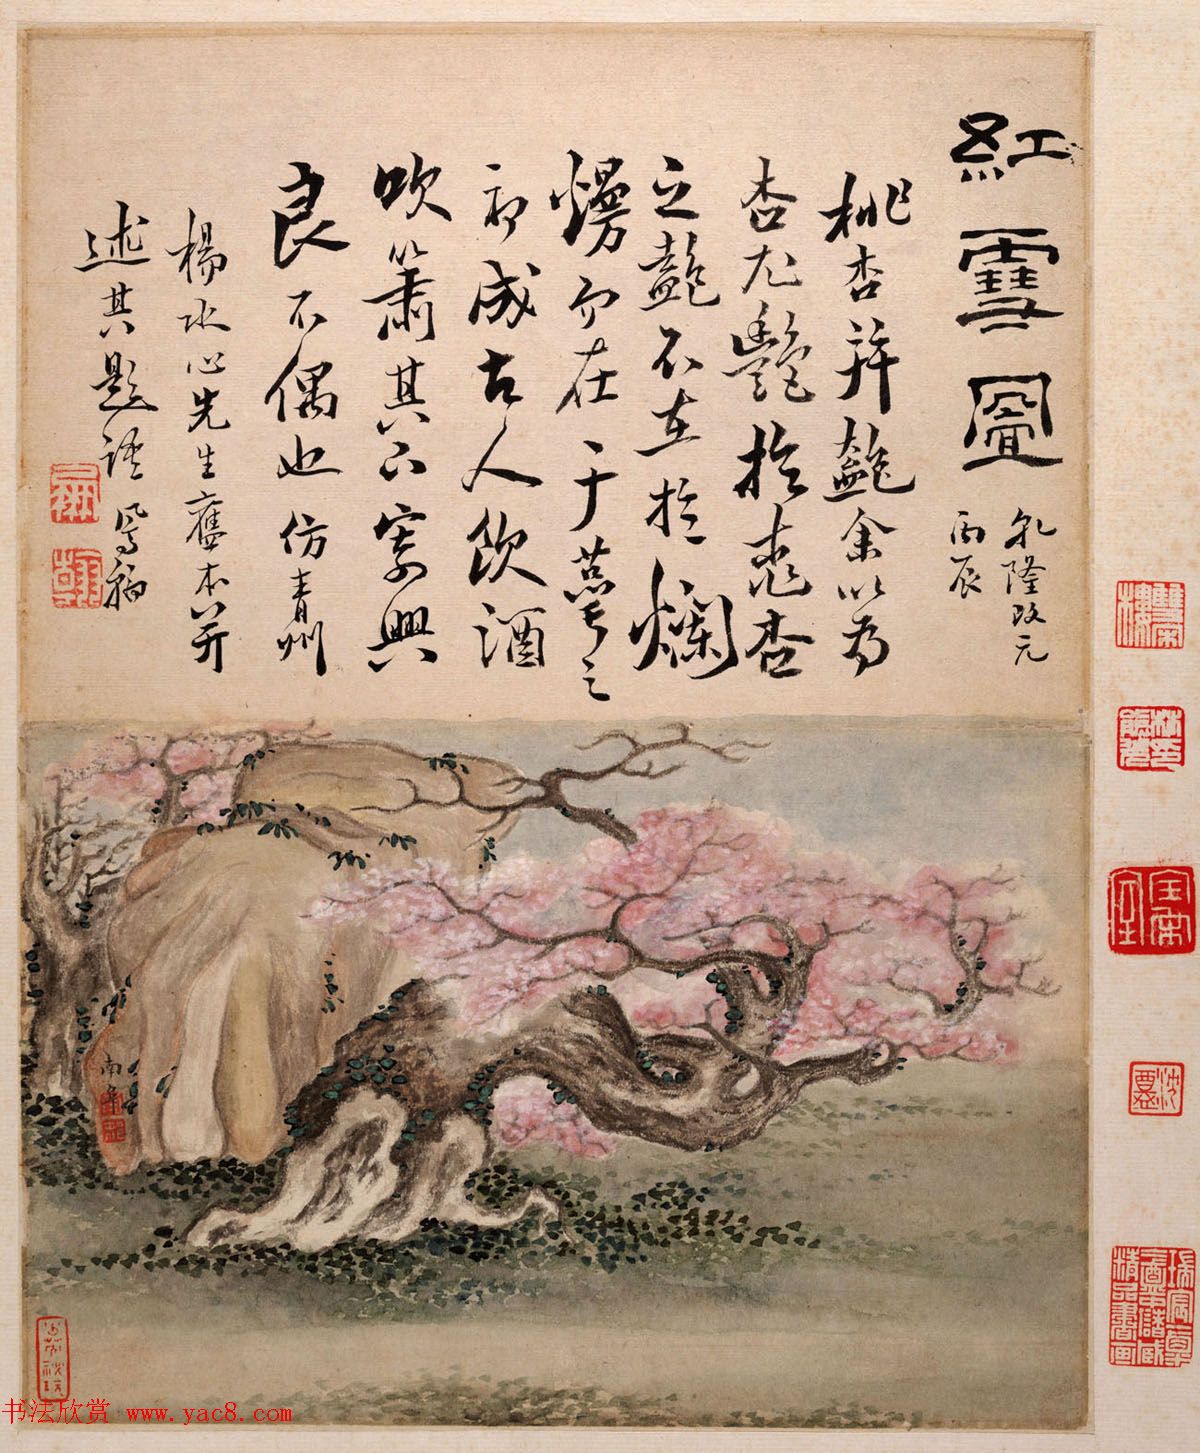 紅雪圖
乾隆改元
丙辰
桃杏并艷余以為
杏尤艷於桃杏
之艷不在於爛
熳而在于之
初成古人飲酒
吹簫其下寄興
良不偶也仿青州
楊水心先生舊本并
述其題語鳳翰
南阜
书法欣赏 www.yac8.com